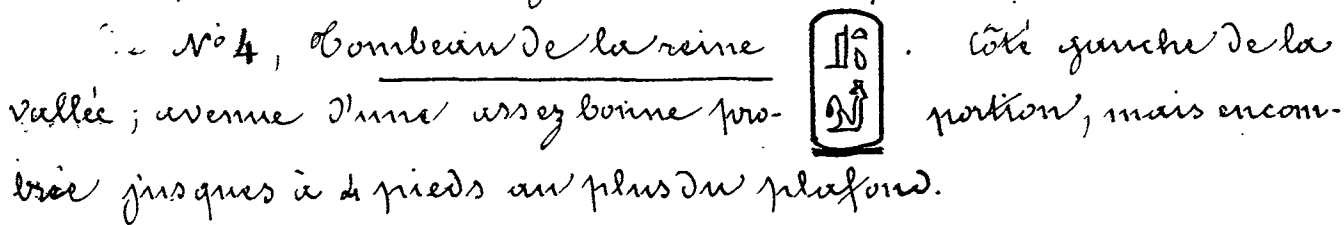 Le N° 4, Tombeau de la reine . Côté gauche de la
vallée ; avenue d'une assez bonne pro- portion, mais encom-
brée jusques à 4 pieds au plus du plafond.